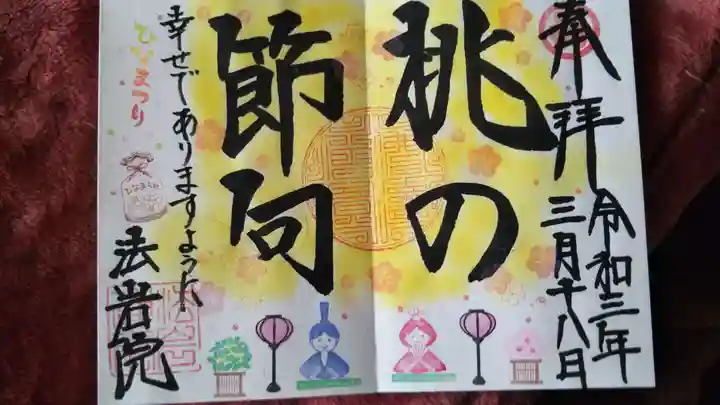 奉拝
令和三年
三月十八日
桃の
節句
幸せでありますように
ひなまつり
法岩院